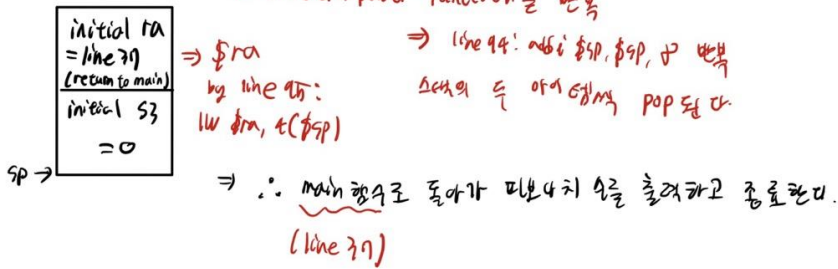 function을 반복
initial ra
= line 37
(return to main)
initial S3
= 0
sp →
⇒ $ra
by line 95:
lw $ra, 4($sp)
⇒ line 94: addi $sp, $sp, 8 반복
스택의 두 아이템씩 pop 된다.
⇒ ∴ main 함수로 돌아가 피보나치 수를 출력하고 종료한다.
(line 37)